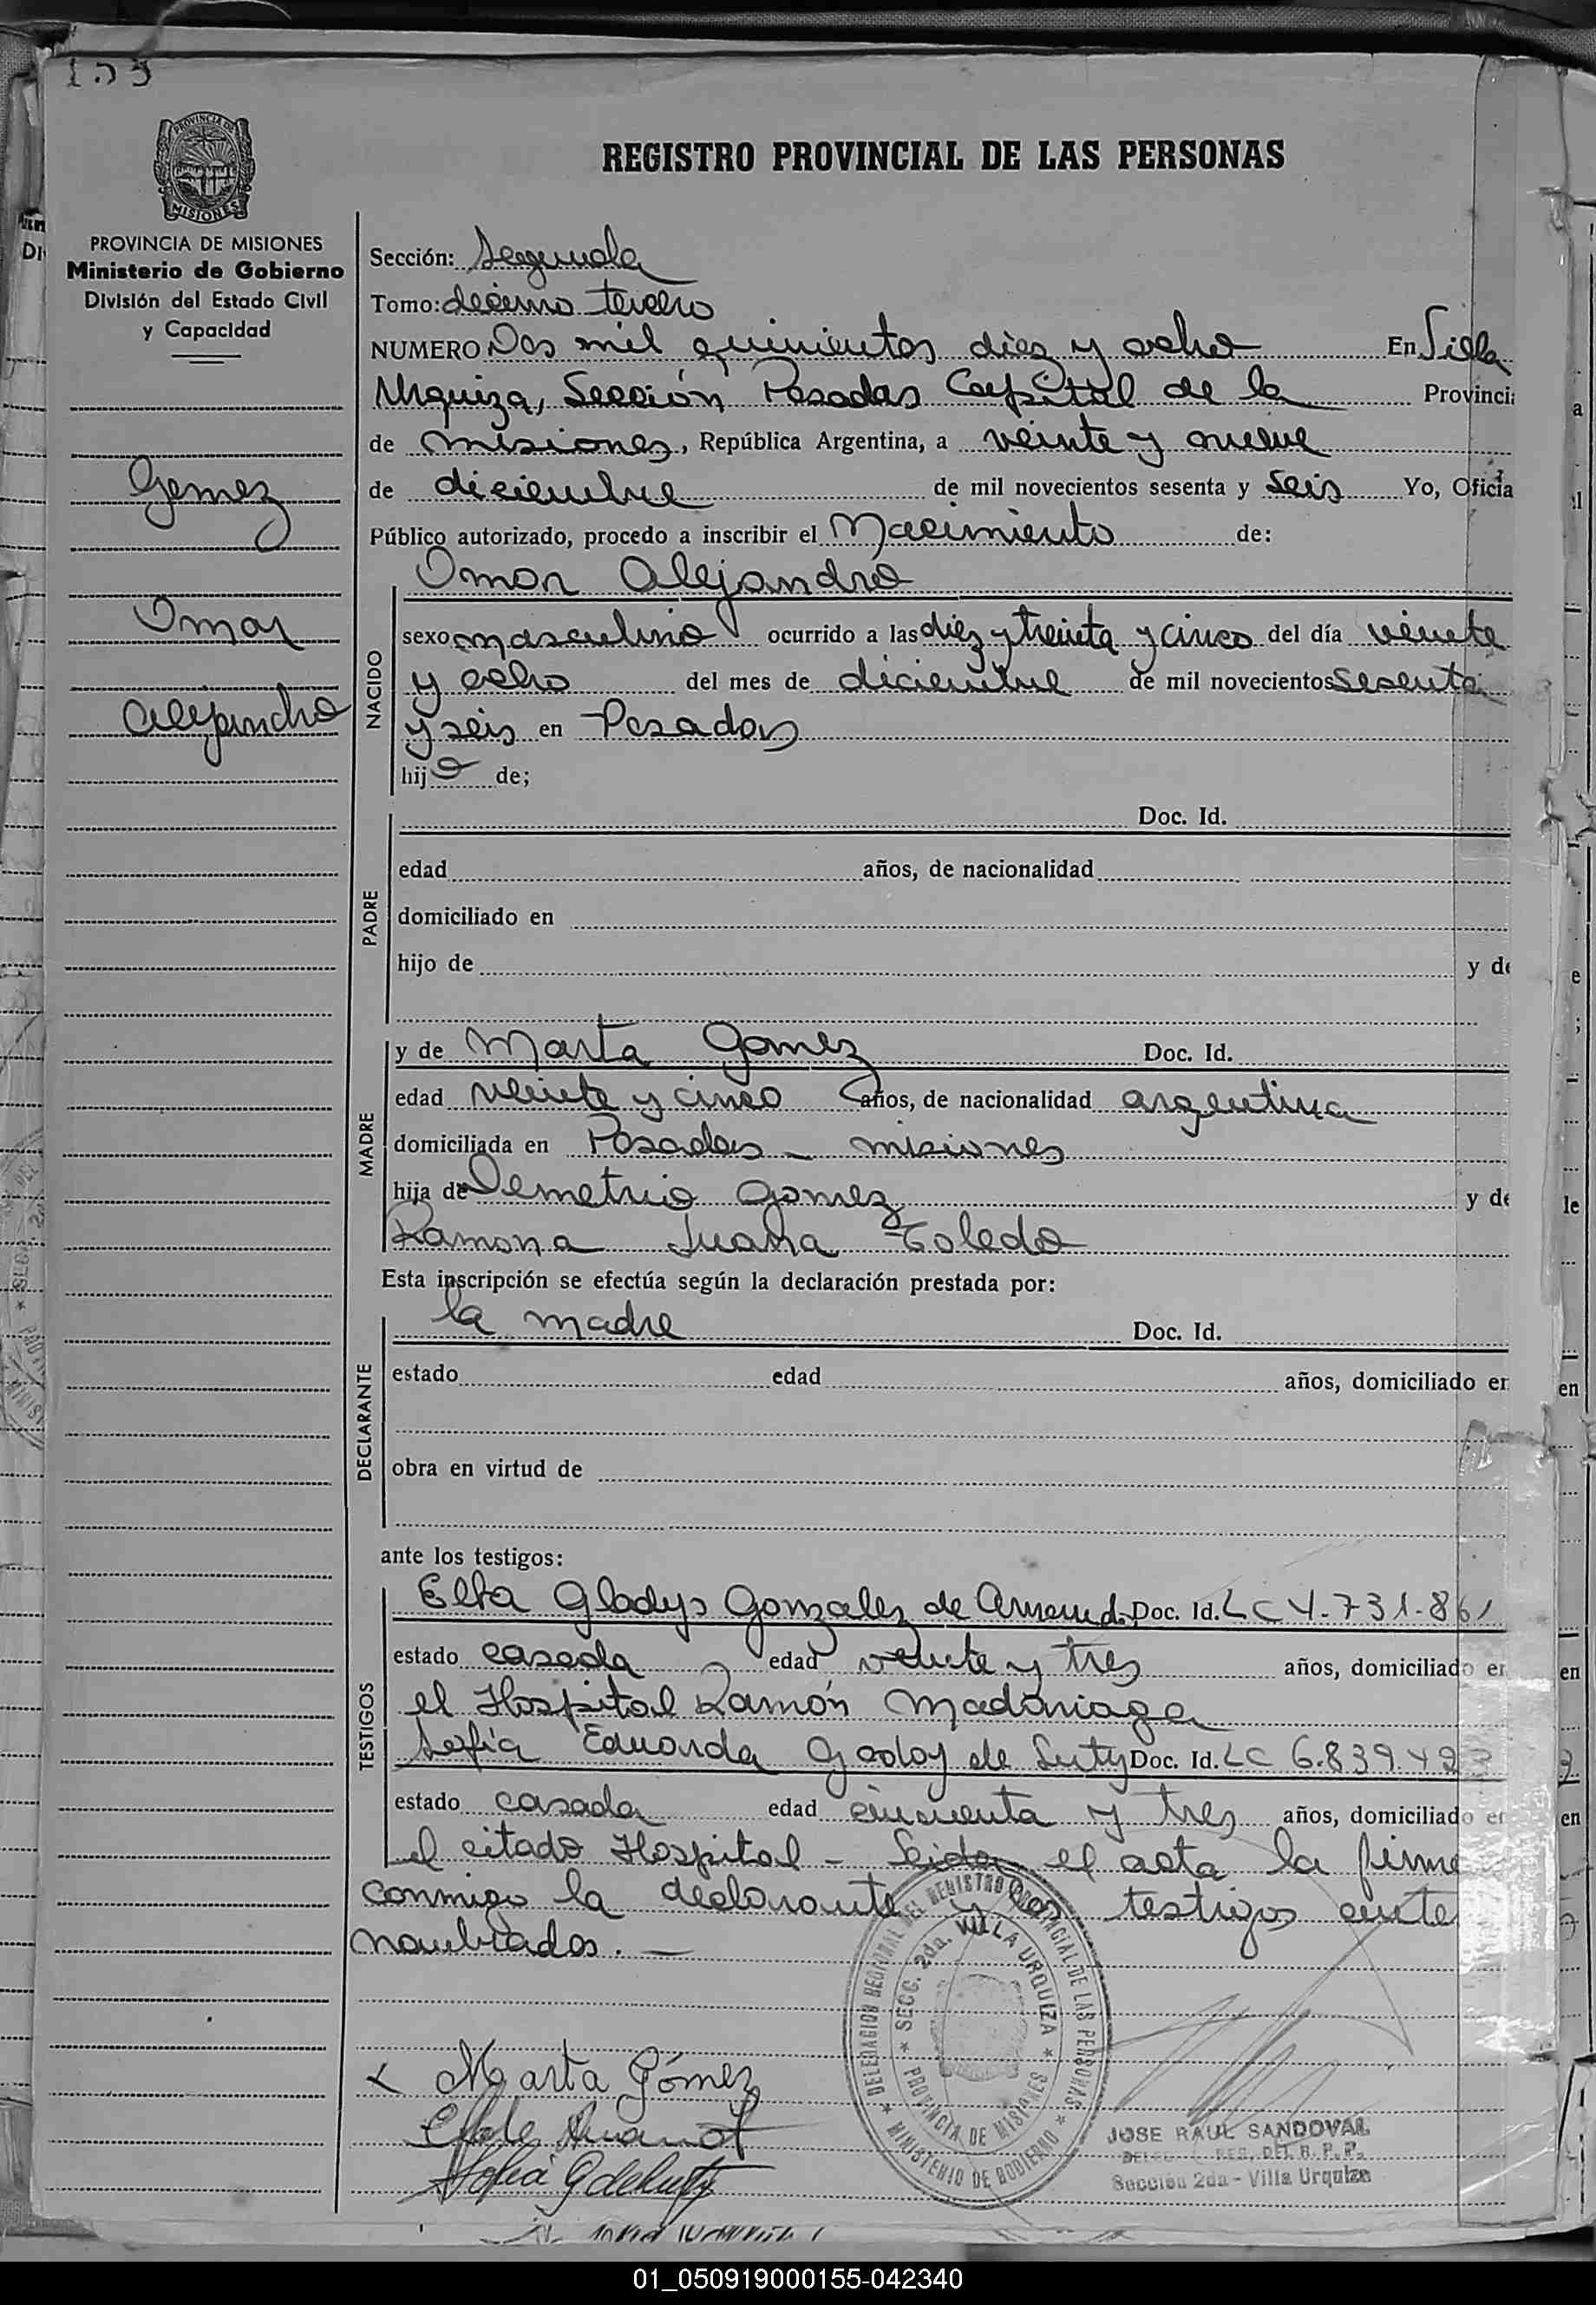 PROVINCIA DE
MISIONES
PROVINCIA DE MISIONES
Ministerio de Gobierno
División del Estado Civil
y Capacidad
Gomez
Omar
Alejandro
REGISTRO PROVINCIAL DE LAS PERSONAS
Sección: Segunda
Tomo: décimo tercero
NUMERO Dos mil quinientos diez y ocho En Villa
Urquiza, Sección Posadas Capital de la Provinci
de Misiones, República Argentina, a veinte y nueve
de diciembre de mil novecientos sesenta y seis Yo, Oficia
Público autorizado, procedo a inscribir el Nacimiento de:
Omar Alejandro
NACIDO
sexo masculino ocurrido a las diez y treinta y cinco del día veinte
y ocho del mes de diciembre de mil novecientos sesenta
y seis en Posadas
hijo de;
PADRE
Doc. Id.
edad años, de nacionalidad
domiciliado en
hijo de y de
MADRE
y de Marta Gomez Doc. Id.
edad veinte y cinco años, de nacionalidad argentina
domiciliada en Posadas - misiones
hija de Demetrio Gomez y de
Ramona Juana Toledo
Esta inscripción se efectúa según la declaración prestada por:
DECLARANTE
la madre Doc. Id.
estado edad años, domiciliado en
obra en virtud de
ante los testigos:
TESTIGOS
Elba Gladys Gonzalez de Doc. Id. LC 4.731.861
estado casada edad veinte y tres años, domiciliado en
el Hospital Ramón Madariaga
Sofía Eduarda Godoy de Doc. Id. LC 6.839.423
estado casada edad cincuenta y tres años, domiciliado en
el citado Hospital - Leída el acta la firma
conmigo la declarante y los testigos ante
nombrados. —
DELEGACION REGIONAL DEL REGISTRO PROVINCIAL DE LAS PERSONAS
SECC. 2da. VILLA URQUIZA
PROVINCIA DE MISIONES
MINISTERIO DE GOBIERNO
Marta Gómez
JOSE RAUL SANDOVAL
Sección 2da - Villa Urquiza
01_050919000155-042340